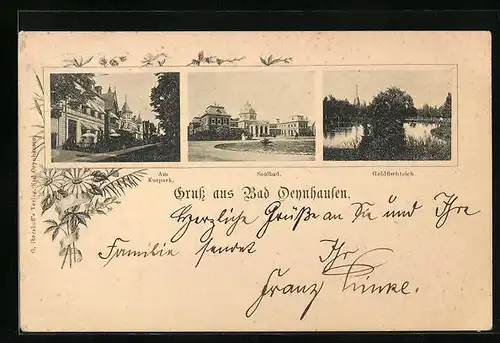 Am
Kurpark.
Soolbad.
Goldfischteich.
Gruß aus Bad Oeynhausen.
Herzliche Grüße an Sie und Ihre
Familie sendet Ihr
Franz
Verlag, Bad Oeynhausen